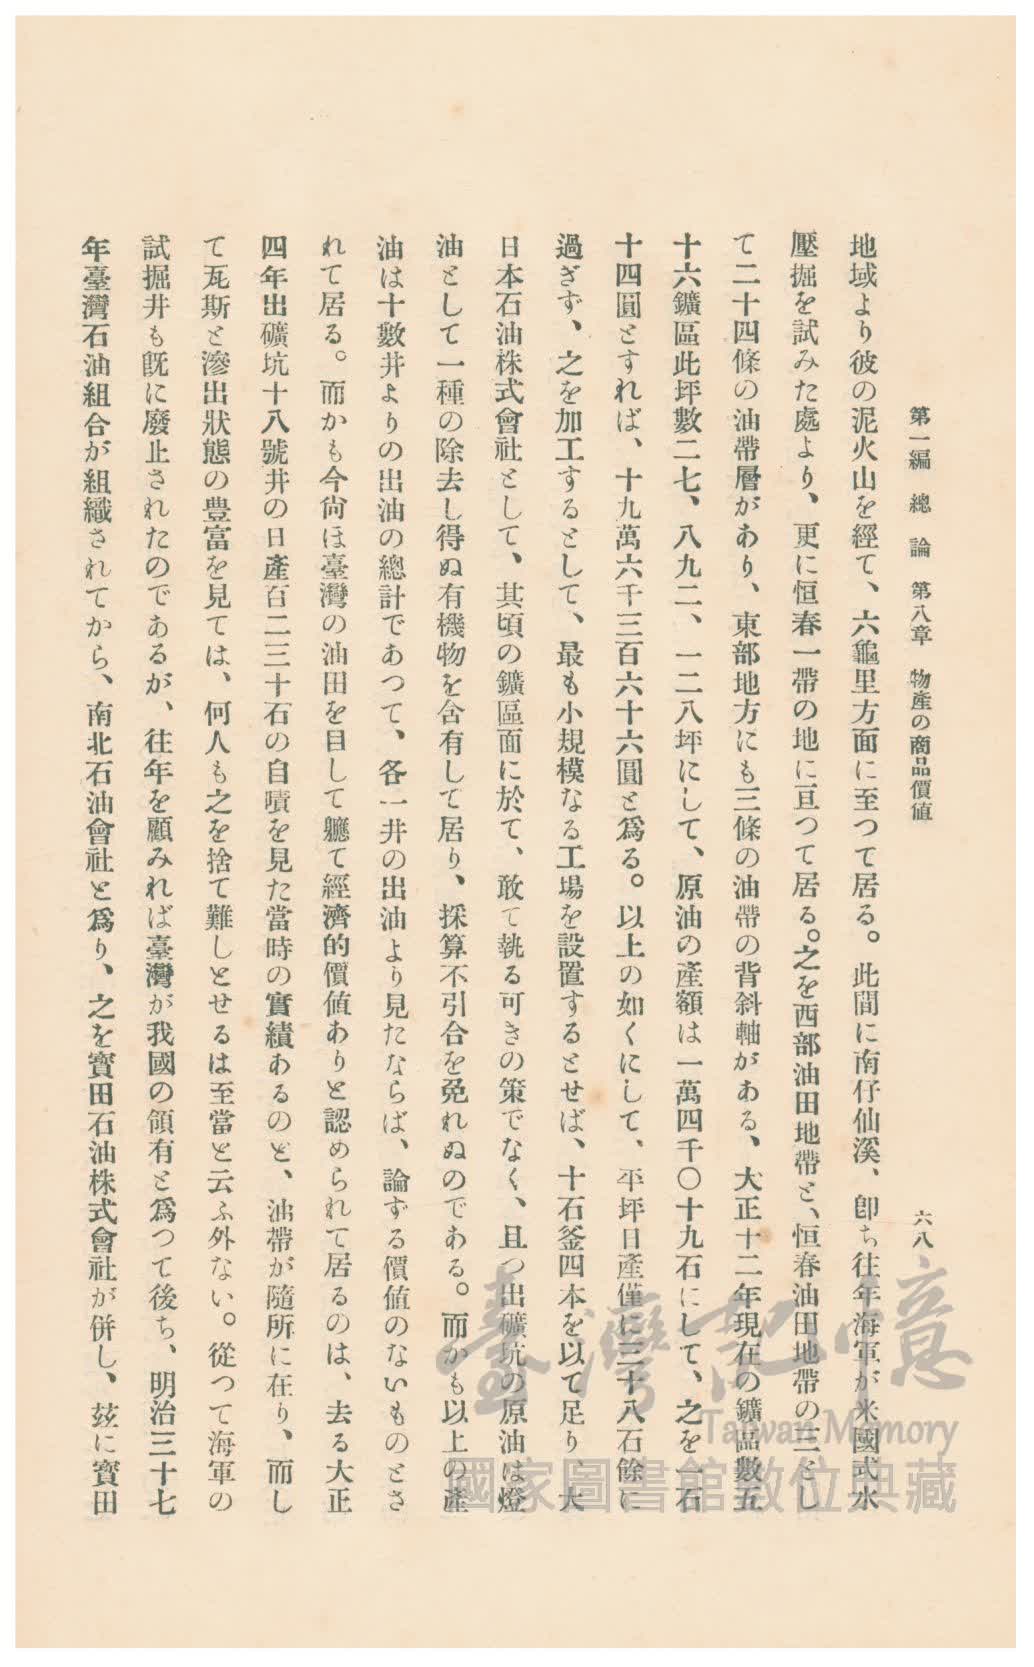 第一編　總　論　第八章　物產の商品價値
六八
地域より彼の泥火山を經て、六龜里方面に至つて居る。此間に南仔仙溪、卽ち往年海軍が米國式水
壓掘を試みた處より、更に恒春一帶の地に亘つて居る。之を西部油田地帶と、恒春油田地帶の二とし
て二十四條の油帶層があり、東部地方にも三條の油帶の背斜軸がある、大正十二年現在の鑛區數五
十六鑛區此坪數二七、八九二、一二八坪にして、原油の產額は一萬四千〇十九石にして、之を一石
十四圓とすれば、十九萬六千三百六十六圓と爲る。以上の如くにして、平坪日產僅に三十八石餘に
過ぎず、之を加工するとして、最も小規模なる工場を設置するとせば、十石釜四本を以て足り、大
日本石油株式會社として、其頃の鑛區面に於て、敢て執る可きの策でなく、且つ出礦坑の原油は燈
油として一種の除去し得ぬ有機物を含有して居り、採算不引合を免れぬのである。而かも以上の產
油は十數井よりの出油の總計であつて、各一井の出油より見たならば、論ずる價値のないものとさ
れて居る。而かも今尙ほ臺灣の油田を目して軈て經濟的價値ありと認められて居るのは、去る大正
四年出礦坑十八號井の日產百二三十石の自噴を見た當時の實績あるのと、油帶が隨所に在り、而し
て瓦斯と滲出狀態の豐富を見ては、何人も之を捨て難しとせるは至當と云ふ外ない。從つて海軍の
試掘井も旣に廢止されたのであるが、往年を顧みれば臺灣が我國の領有と爲つて後ち、明治三十七
年臺灣石油組合が組織されてから、南北石油會社と爲り、之を寳田石油株式會社が併し、玆に寳田
臺灣記憶
Taiwan Memory
國家圖書館數位典藏